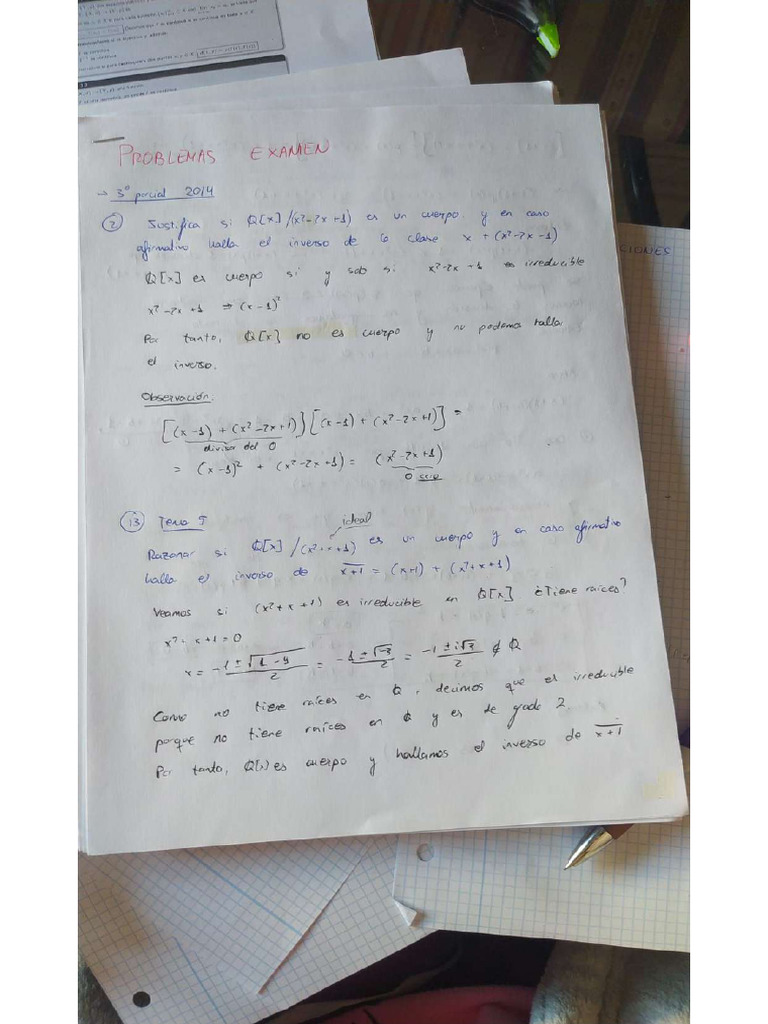 PROBLEMAS EXAMEN
→ 3º parcial 2014
② Justifica si Q[x]/(x²-2x+1) es un cuerpo y en caso
afirmativo halla el inverso de la clase x + (x²-2x-1)
Q[x] es cuerpo si y solo si x²-2x+1 es irreducible
x²-2x+1 ⇒ (x-1)²
Por tanto, Q[x] no es cuerpo y no podemos hallar
el inverso.
Observación:
[(x-1) + (x²-2x+1)][(x-1) + (x²-2x+1)] =
divisor del 0
= (x-1)² + (x²-2x+1) = (x²-2x+1)
0
⑬ Tema 5
ideal
Razonar si Q[x]/(x²+x+1) es un cuerpo y en caso afirmativo
halla el inverso de x+1 = (x+1) + (x²+x+1)
Veamos si (x²+x+1) es irreducible en Q[x]. ¿Tiene raíces?
x²+x+1=0
x = -1±√1-4/2 = -1±√-3/2 = -1±i√3/2 ∉ Q
Como no tiene raíces en Q, decimos que es irreducible
porque no tiene raíces en Q y es de grado 2.
Por tanto, Q[x] es cuerpo y hallamos el inverso de x+1
CIONES